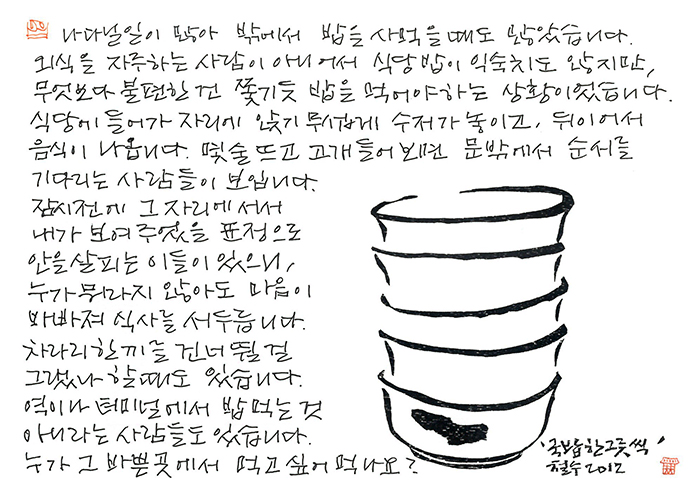 나다닐일이 많아 밖에서 밥을 사먹을때도 많았습니다.
외식을 자주하는 사람이 아니어서 식당밥이 익숙치도 않지만,
무엇보다 불편한 건 쫓기듯 밥을 먹어야하는 상황이었습니다.
식당에 들어가 자리에 앉기 무섭게 수저가 놓이고, 뒤이어서
음식이 나옵니다. 몇술 뜨고 고개들어보면 문밖에서 순서를
기다리는 사람들이 보입니다.
잠시전에 그 자리에 서서
내가 보여주었을 표정으로
안을 살피는 이들이 있으니,
누가 뭐라지 않아도 마음이
바빠져 식사를 서두릅니다.
차라리 한끼를 건너 뛸 걸
그랬나 할때도 있습니다.
역이나 터미널에서 밥 먹는 것
아니라는 사람들도 있습니다.
누가 그 바쁜곳에서 먹고 싶어 먹나요?
'국밥 한그릇씩'
철수 2012